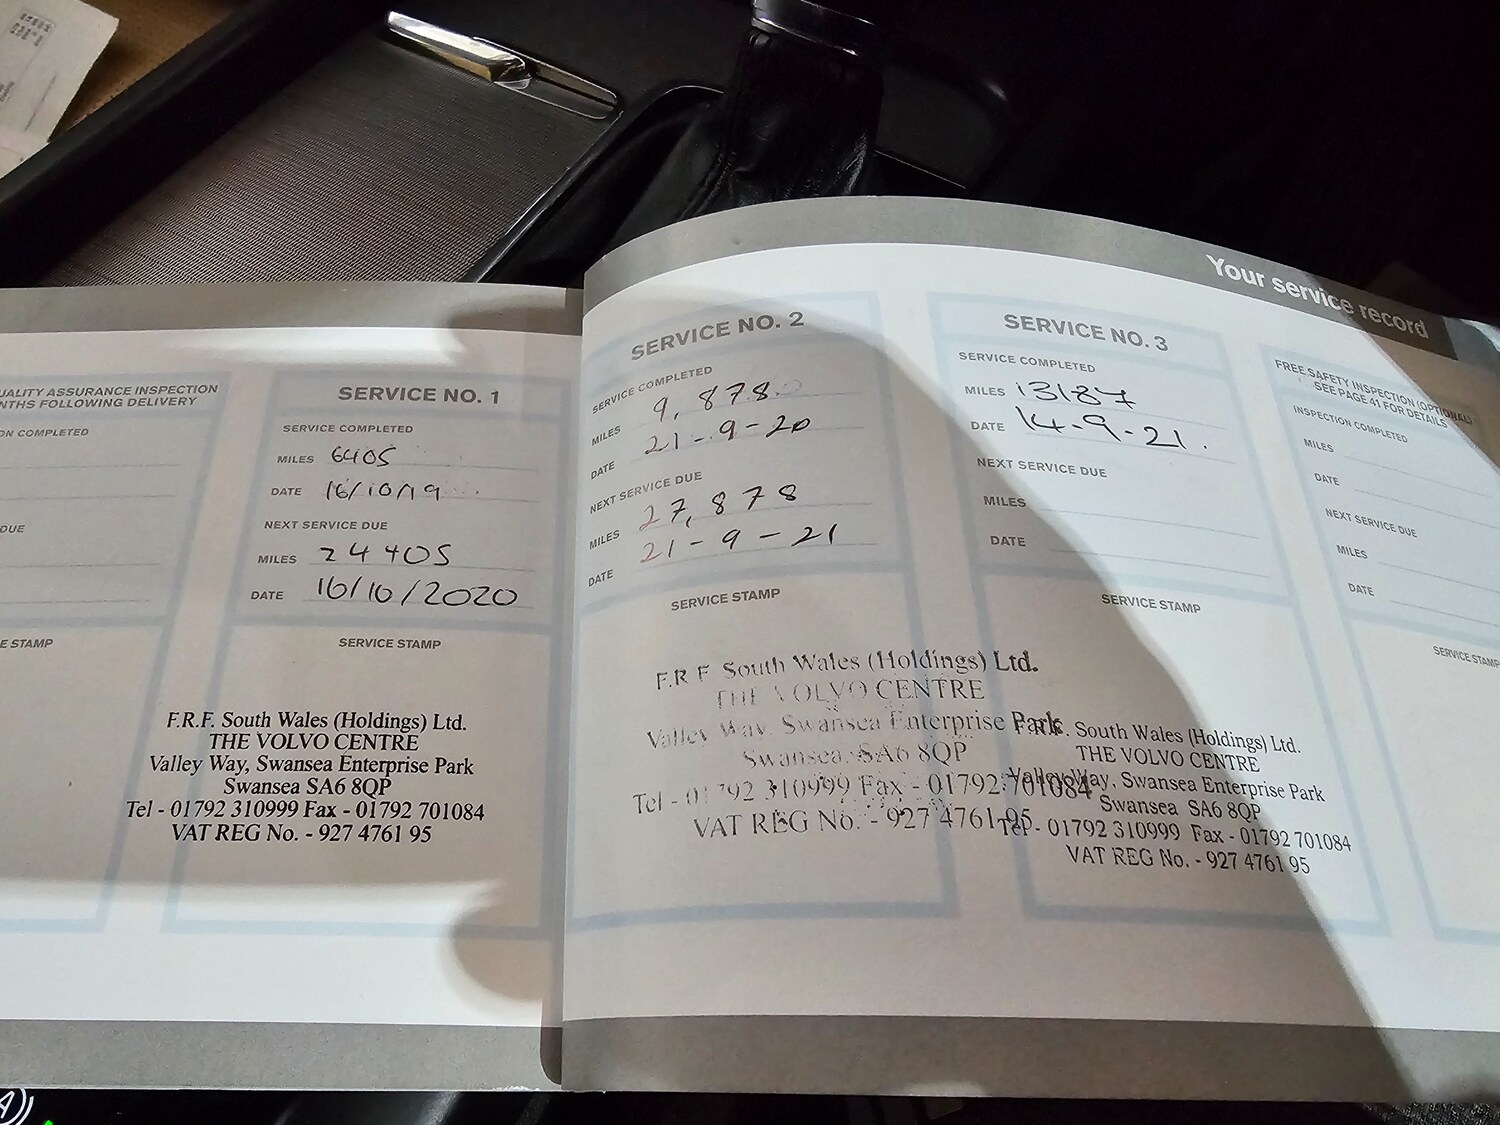 Your service record
UALITY ASSURANCE INSPECTION
NTHS FOLLOWING DELIVERY
ON COMPLETED
DUE
E STAMP
SERVICE NO. 1
SERVICE COMPLETED
MILES 6405
DATE 16/10/19
NEXT SERVICE DUE
MILES 24405
DATE 16/10/2020
SERVICE STAMP
F.R.F. South Wales (Holdings) Ltd.
THE VOLVO CENTRE
Valley Way, Swansea Enterprise Park
Swansea SA6 8QP
Tel - 01792 310999 Fax - 01792 701084
VAT REG No. - 927 4761 95
SERVICE NO. 2
SERVICE COMPLETED
MILES 9,878
DATE 21-9-20
NEXT SERVICE DUE
MILES 27,878
DATE 21-9-21
SERVICE STAMP
F.R.F South Wales (Holdings) Ltd.
THE VOLVO CENTRE
Valley Way, Swansea Enterprise Park
Swansea SA6 8QP
Tel - 01792 310999 Fax - 01792 701084
VAT REG No. - 927 4761 95
SERVICE NO. 3
SERVICE COMPLETED
MILES 13187
DATE 14-9-21.
NEXT SERVICE DUE
MILES
DATE
SERVICE STAMP
South Wales (Holdings) Ltd.
THE VOLVO CENTRE
Valley Way, Swansea Enterprise Park
Swansea SA6 8QP
Tel - 01792 310999 Fax - 01792 701084
VAT REG No. - 927 4761 95
FREE SAFETY INSPECTION (OPTIONAL)
SEE PAGE 41 FOR DETAILS
INSPECTION COMPLETED
MILES
DATE
NEXT SERVICE DUE
MILES
DATE
SERVICE STAMP